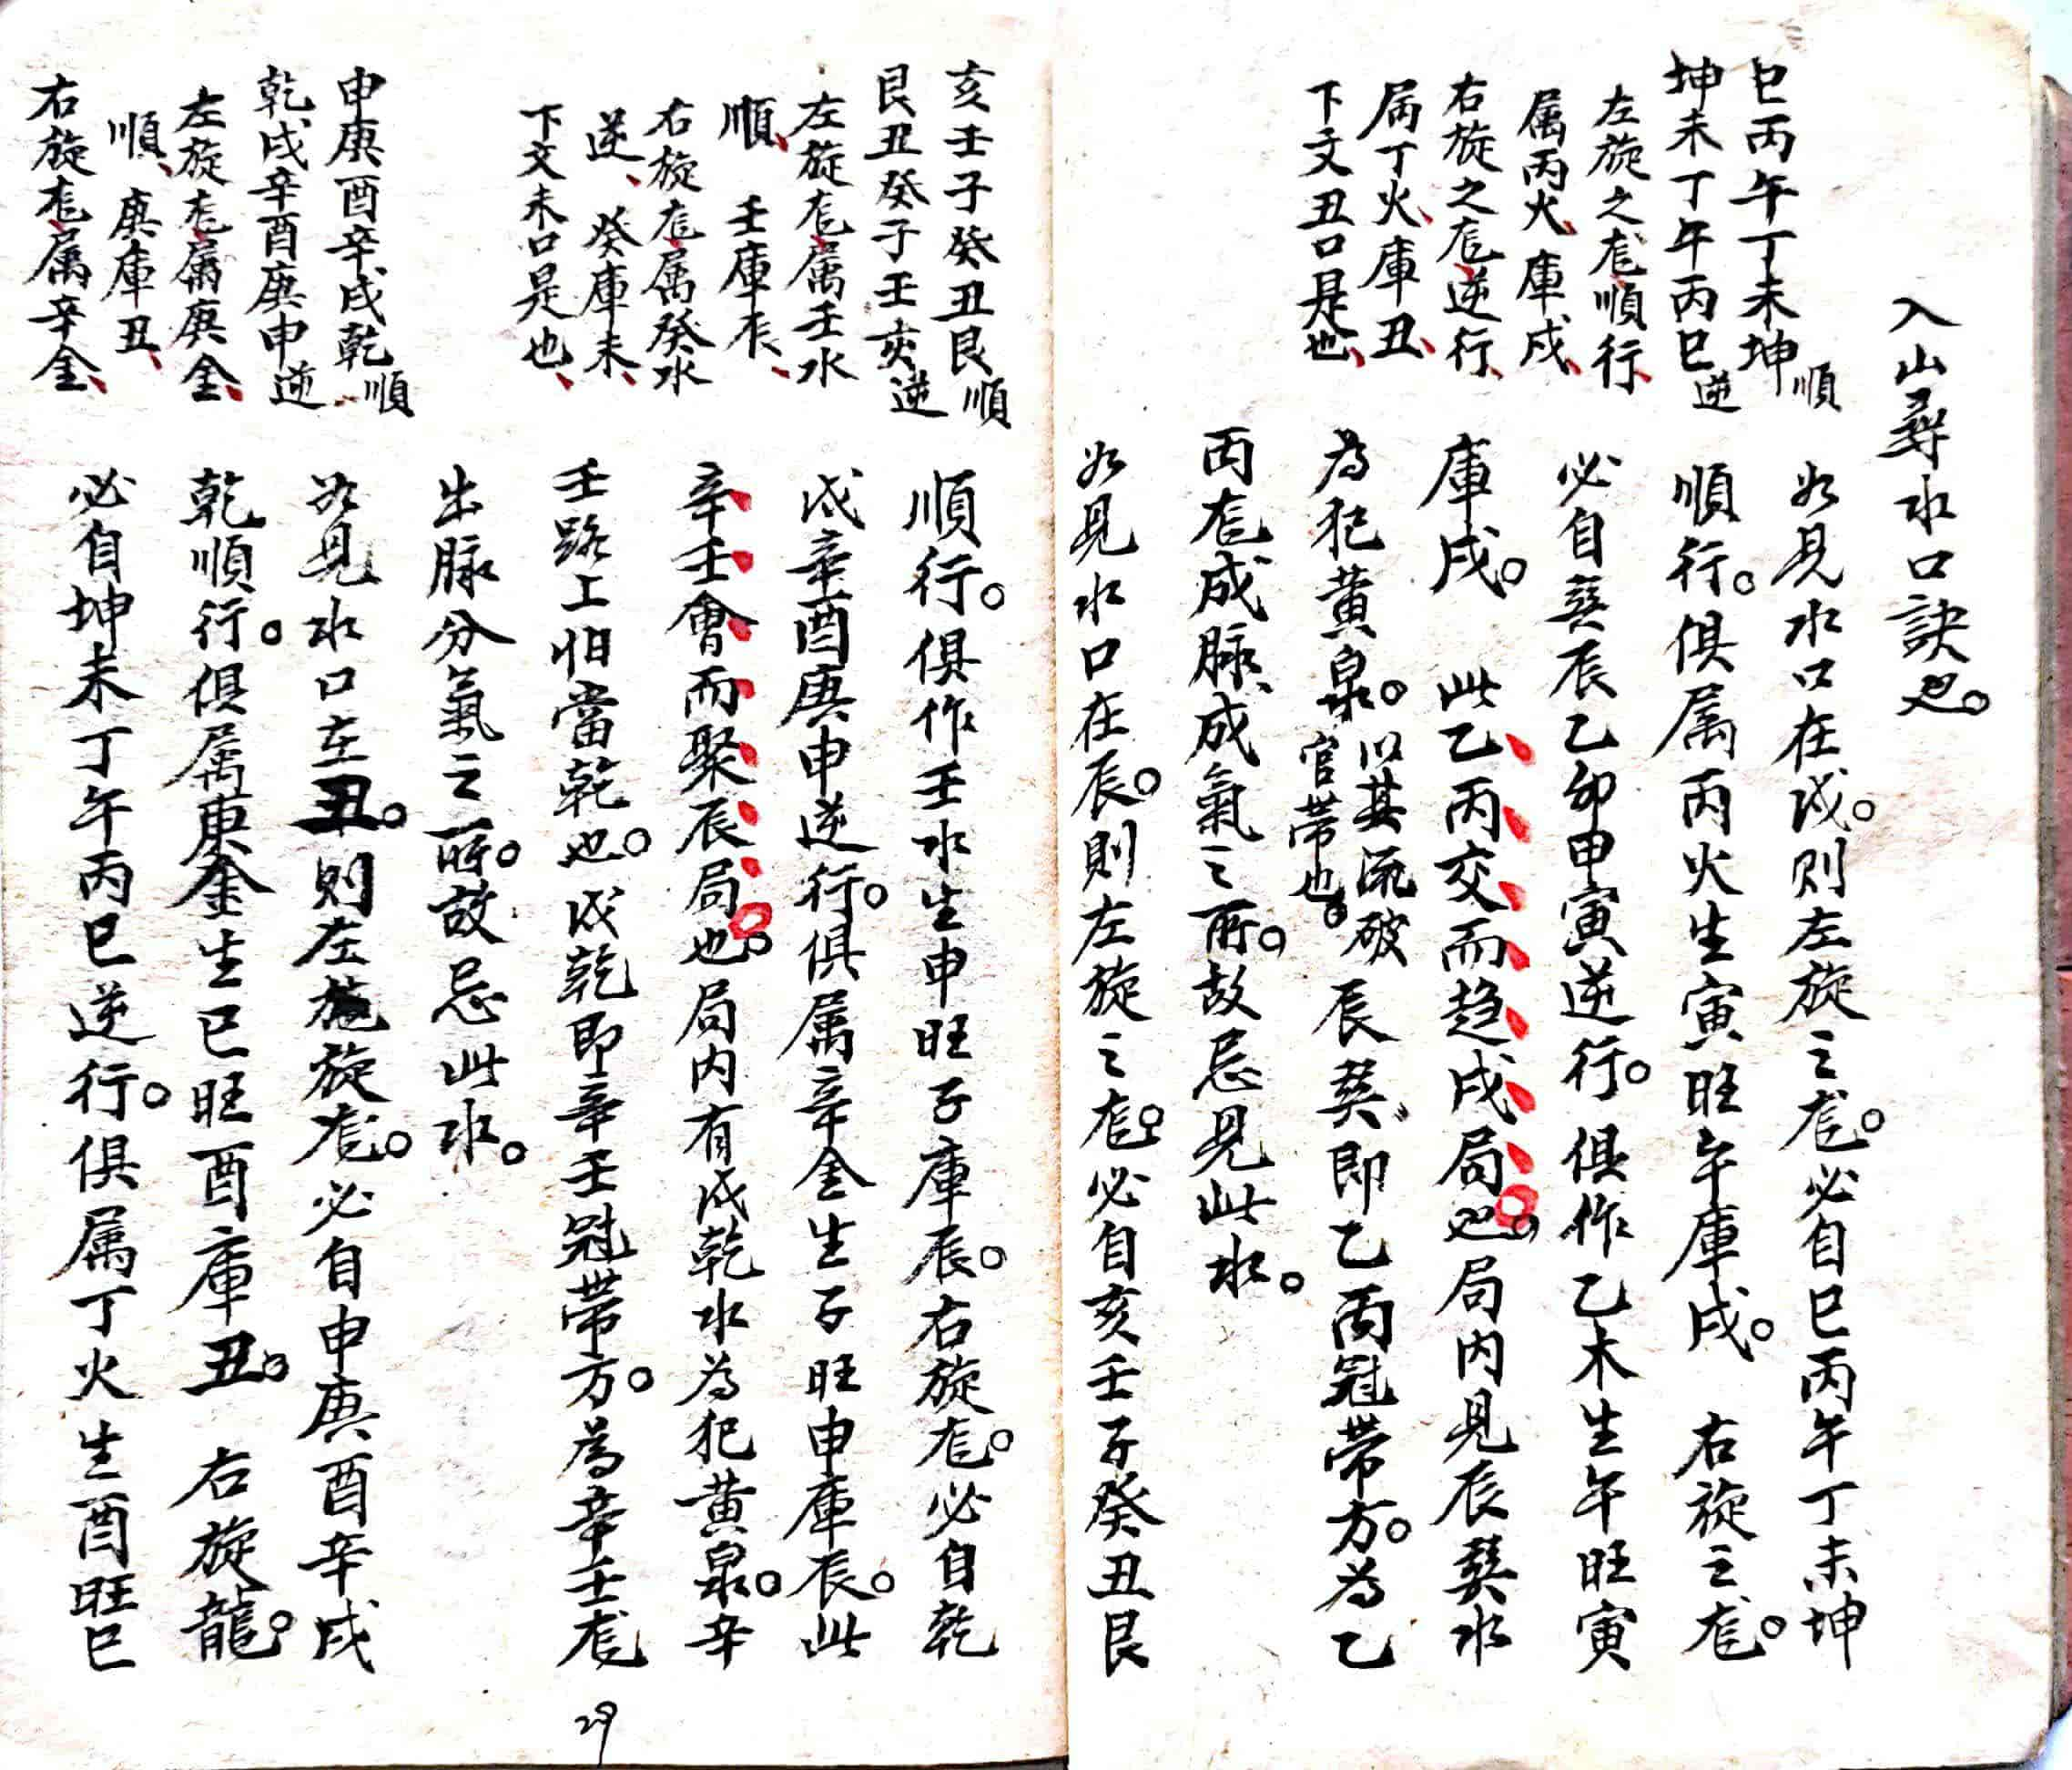 入山尋水口訣也。
巳丙午丁未坤順
坤未丁午丙巳逆
左旋之龙順行、
属丙火、庫戌、
右旋之龙逆行、
属丁火、庫丑、
下文丑口是也、
如見水口在戌。則左旋之龙。必自巳丙午丁未坤
順行。俱属丙火生寅旺午庫戌。右旋之龙。
必自巽辰乙卯甲寅逆行。俱作乙木生午旺寅
庫戌。此乙丙交而趋戌局也。局内見辰巽水
為犯黄泉。以其流破官帶也。辰巽即乙丙冠帶方。為乙
丙龙成脉、成氣之所。故忌見此水。
如見水口在辰。則左旋之龙。必自亥壬子癸丑艮
亥壬子癸丑艮順
艮丑癸子壬亥逆
左旋龙、属壬水
順、壬庫辰、
右旋龙、属癸水
逆、癸庫未、
下文未口是也、
申庚酉辛戌乾順
乾戌辛酉庚申逆
左旋龙、属庚金、
順、庚庫丑、
右旋龙、属辛金、
順行。俱作壬水生申旺子庫辰。右旋龙。必自乾
戌辛酉庚申逆行。俱属辛金生子旺申庫辰。此
辛壬會而聚辰局也。局内有戌乾水為犯黄泉。辛
壬路上怕當乾也。戌乾即辛壬冠帶方。為辛壬龙
出脉分氣之所。故忌此水。
如見水口在丑。則左旋龙。必自申庚酉辛戌
乾順行。俱属庚金生巳旺酉庫丑。右旋龍。
必自坤未丁午丙巳逆行。俱属丁火生酉旺巳
29